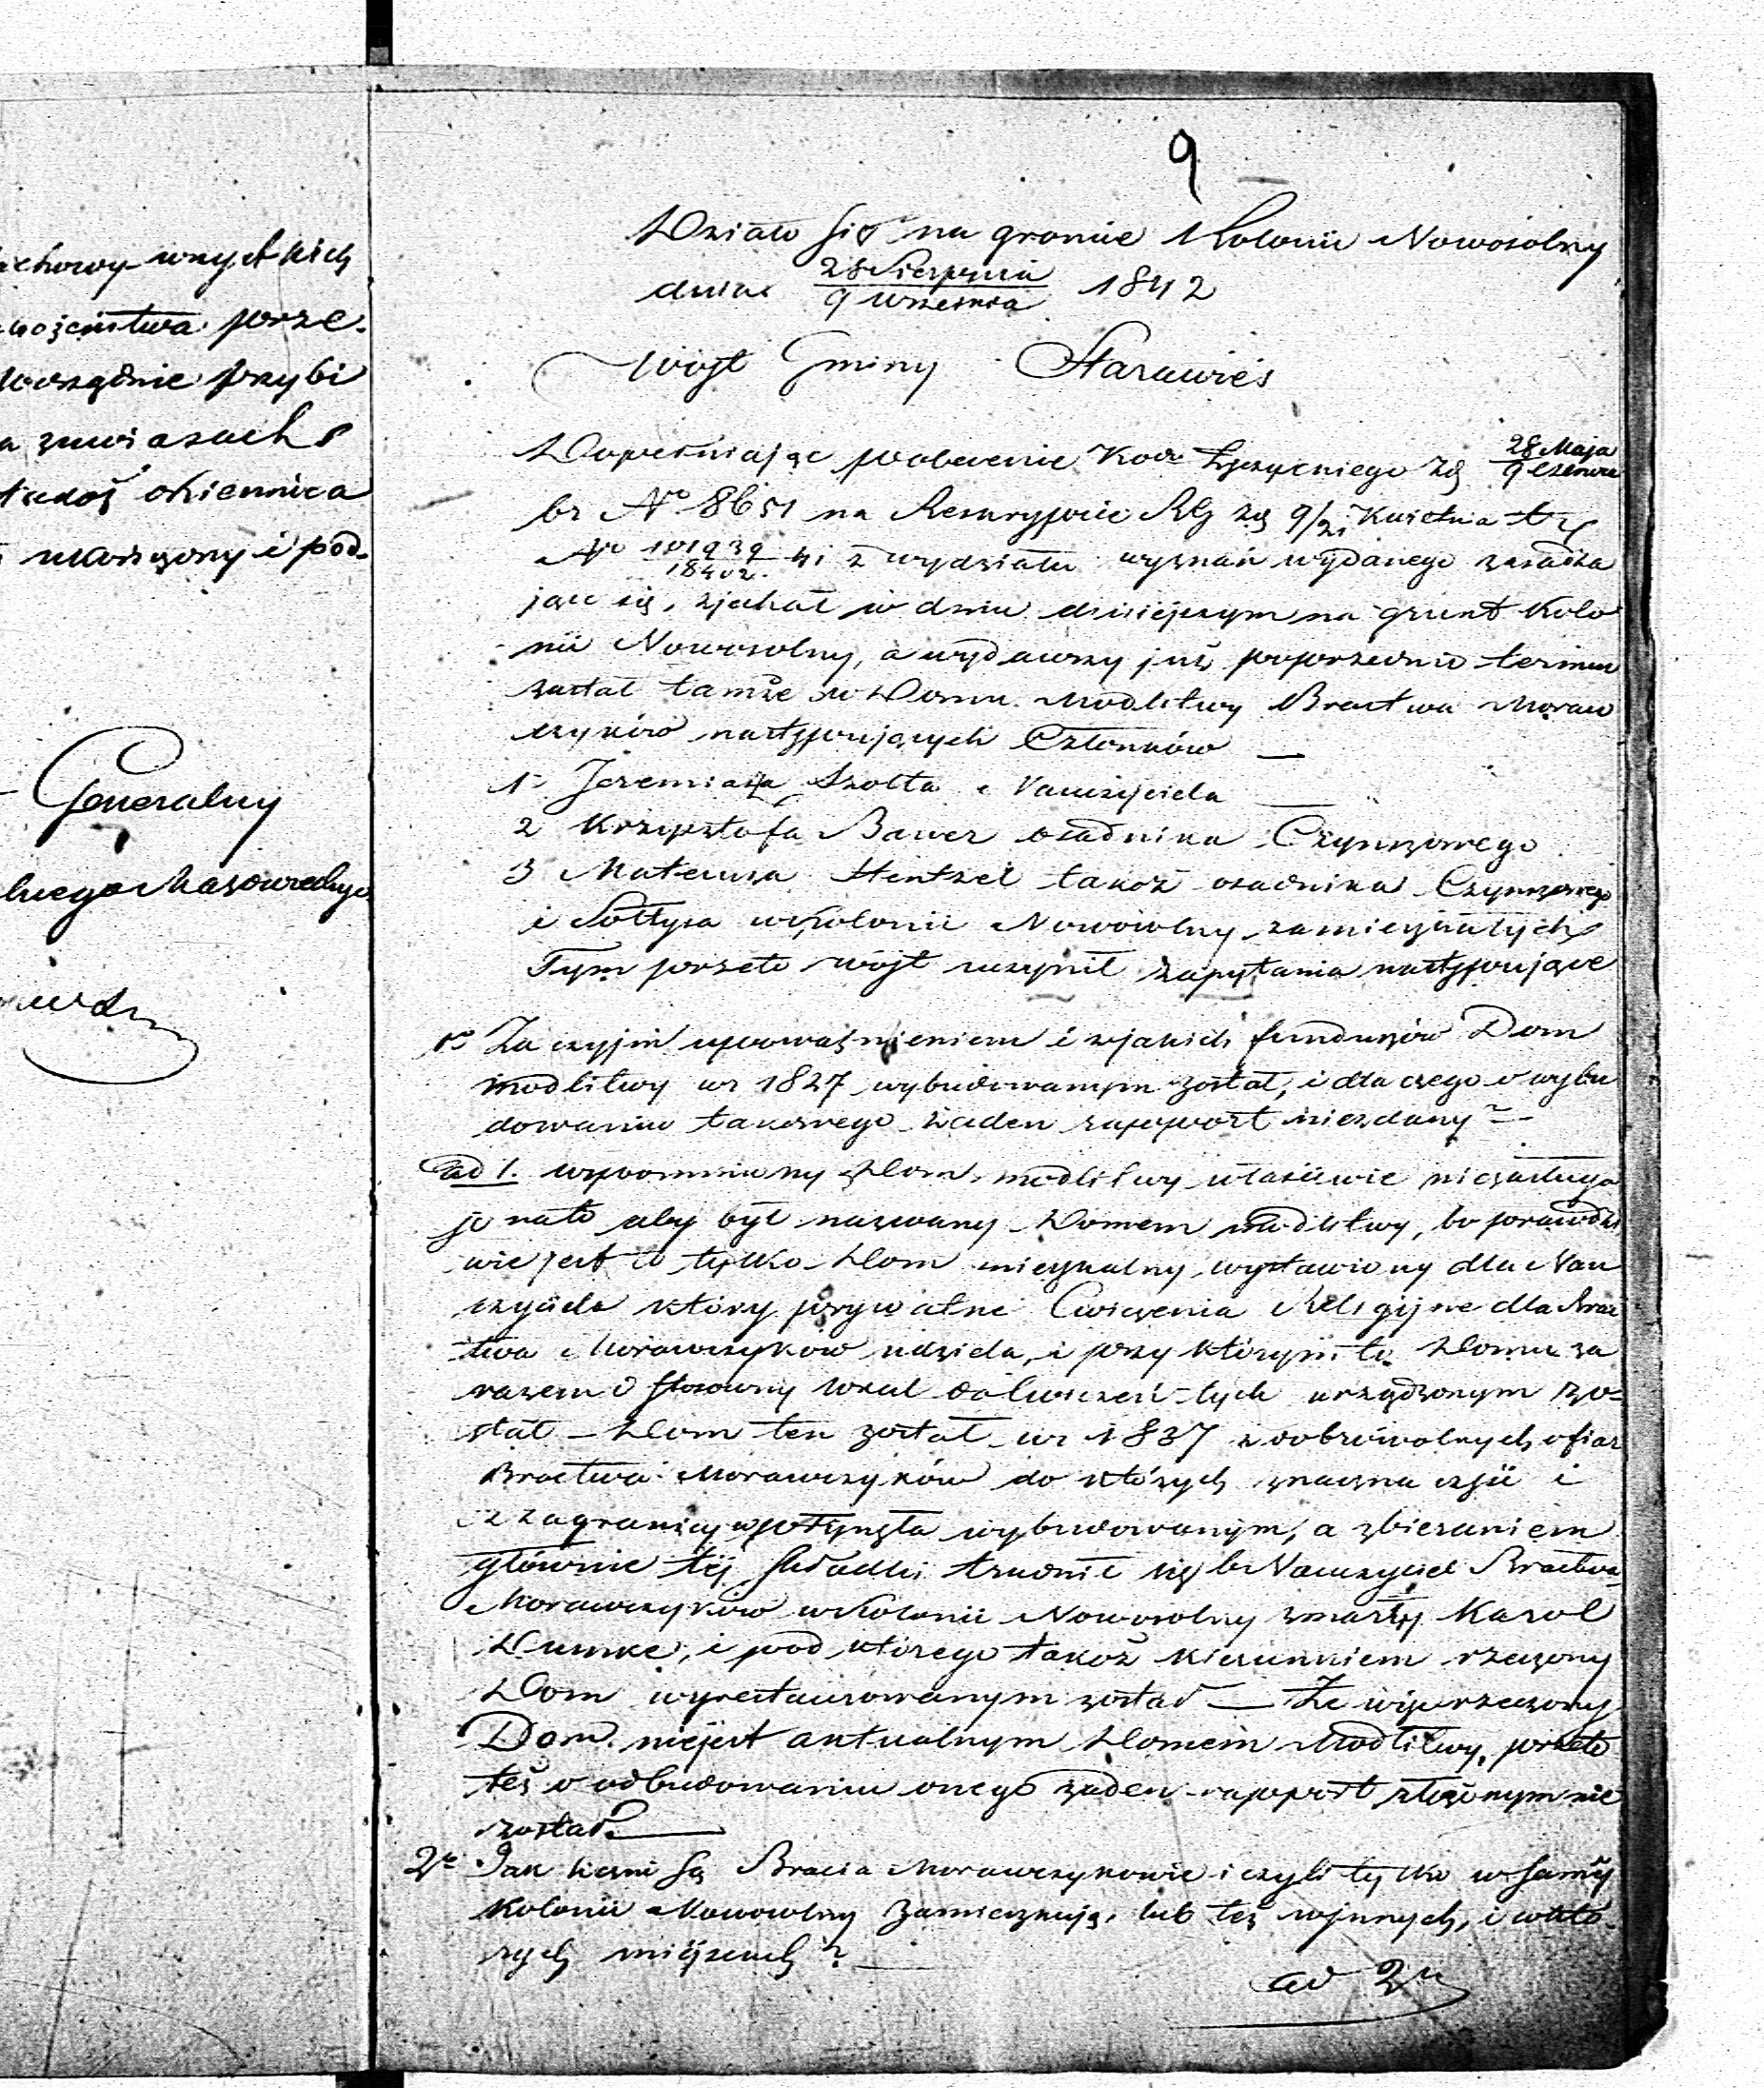 chowy wszystkich
nożeństwa prze-
porządnie przybi
zawiasach
okiennica
i pod-
Generalny
Mazowieckiego
9
Działo się na gruncie Kolonii Nowosolny
dnia 28 Sierpnia / 9 Września 1842
Wójt Gminy Starawieś
Dopełniając polecenie Łęczyckiego z 28 Maja / 9 Czerwca
br No 8651 na Reskrypcie RG z 9/21 Kwietnia
No z wydziału wyznań wydanego zasadza
jąc się, zjechał w dniu dzisiejszym na grunt Kolo
nii Nowosolny, a wydawszy już poprzednio termin
zastał tamże w Domu Modlitwy Bractwa Moraw
czyków następujących Członków —
1- Jeremiasza Szolta Nauczyciela —
2 Krzysztofa Bauer osadnika Czynszowego
3 Mateusza Hentzel takoż osadnika Czynszowego
i Sołtysa w Kolonii Nowosolny zamieszkałych
Tym przeto wójt uczynił zapytania następujące
1o Za czyjim upoważnieniem i z jakich funduszów Dom
modlitwy w r 1827 wybudowanym został, i dla czego o wybu
dowaniu takowego żaden rapport niezdany? -
ad 1. wspomniany Dom modlitwy właściwie niezasługu
je nato aby był nazwany Domem modlitwy, bo prawdzi
wie jest to tylko Dom mieszkalny wystawiony dla Nau
czyciela który prywatne Ćwiczenia Religijne dla Brac
twa Morawczyków udziela, i przy którym to Domu za
razem i stosowny lokal do ćwiczeń tych urządzonym zo-
stał — Dom ten został w r 1837 z dobrowolnych ofiar
Bractwa Morawczyków do których znaczna część i
z zagranicy wpłynęła wybudowanym, a zbieraniem
głównie tej składki trudnił się br Nauczyciel Bractwa
Morawczyków w Kolonii Nowosolny zmarły Karol
Dumke, i pod którego takoż kierunkiem rzeczony
Dom wyrestaurowanym został — Że więc rzeczony
Dom niejest aktualnym Domem Modlitwy, przeto
też o odbudowaniu onego żaden rapport złożonym nie
został. —
2o Jak liczni są Bracia Morawczykowie i czyli tylko w samej
Kolonii Nowosolny zamieszkują, lub też w innych, i w któ
rych miejscach? —
ad 2o